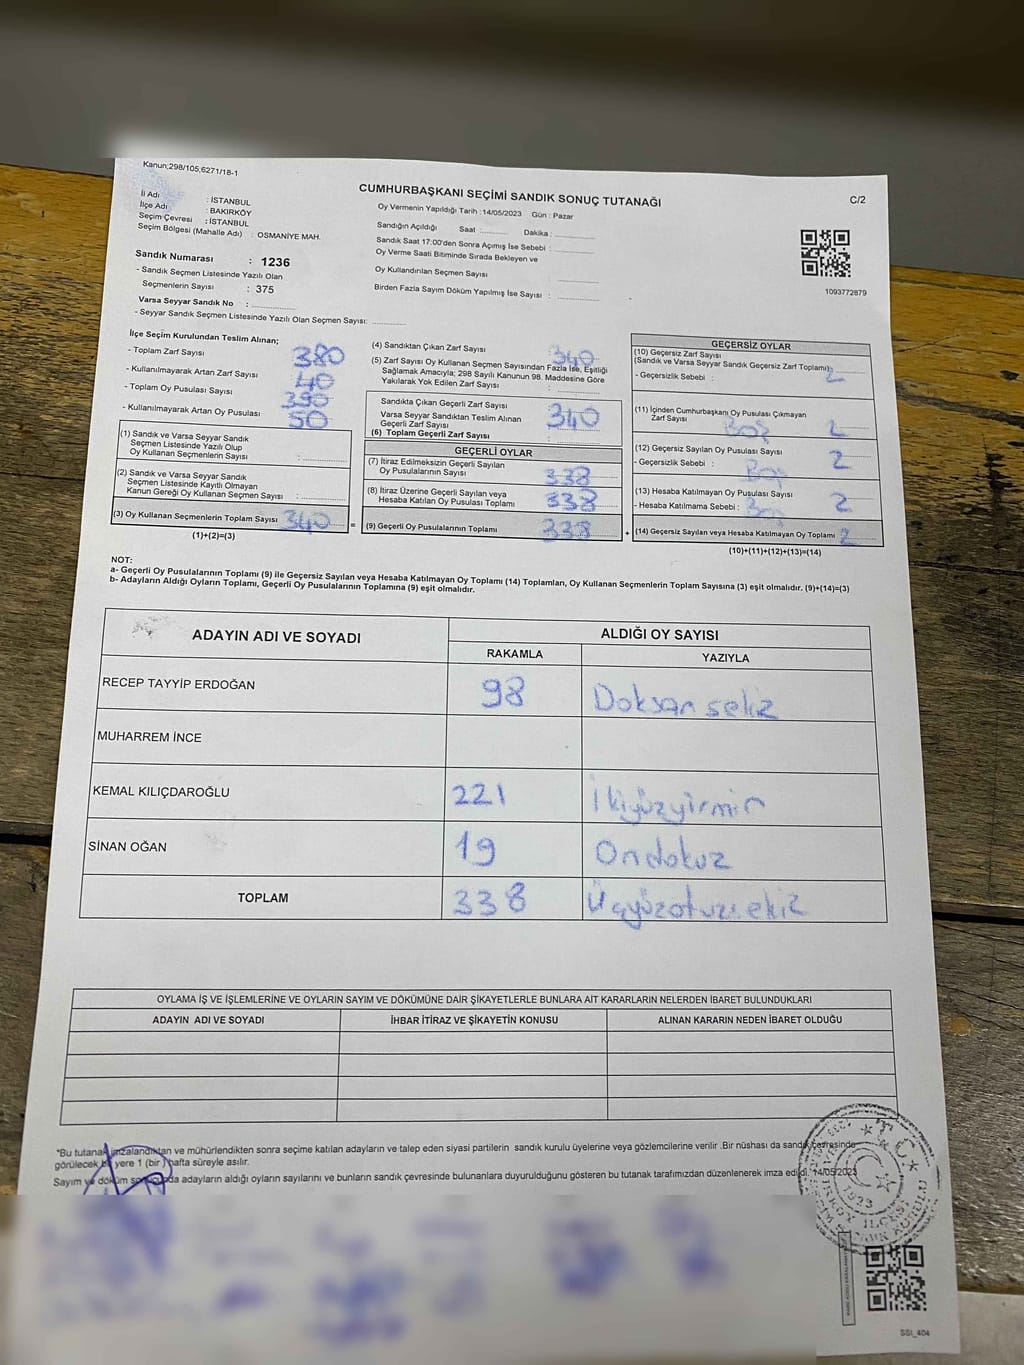 Kanun;298/105,6271/18-1
CUMHURBAŞKANI SEÇİMİ SANDIK SONUÇ TUTANAĞI
C/2
İl Adı : İSTANBUL
İlçe Adı : BAKIRKÖY
Seçim Çevresi : İSTANBUL
Seçim Bölgesi (Mahalle Adı) : OSMANİYE MAH.
Oy Vermenin Yapıldığı Tarih :14/05/2023 Gün : Pazar
Sandığın Açıldığı Saat :......... Dakika : ............
Sandık Saat 17:00'den Sonra Açımış İse Sebebi : ............
Oy Verme Saati Bitiminde Sırada Bekleyen ve
Oy Kullandırılan Seçmen Sayısı : ............
Birden Fazla Sayım Döküm Yapılmış İse Sayısı : ............
1093772879
Sandık Numarası : 1236
- Sandık Seçmen Listesinde Yazılı Olan
Seçmenlerin Sayısı : 375
Varsa Seyyar Sandık No : ............
- Seyyar Sandık Seçmen Listesinde Yazılı Olan Seçmen Sayısı: ............
İlçe Seçim Kurulundan Teslim Alınan;
- Toplam Zarf Sayısı 380
- Kullanılmayarak Artan Zarf Sayısı 40
- Toplam Oy Pusulası Sayısı 390
- Kullanılmayarak Artan Oy Pusulası 50
(1) Sandık ve Varsa Seyyar Sandık
Seçmen Listesinde Yazılı Olup
Oy Kullanan Seçmenlerin Sayısı : ............
(2) Sandık ve Varsa Seyyar Sandık
Seçmen Listesinde Kayıtlı Olmayan
Kanun Gereği Oy Kullanan Seçmen Sayısı : ............
(3) Oy Kullanan Seçmenlerin Toplam Sayısı 340 =
(1)+(2)=(3)
(4) Sandıktan Çıkan Zarf Sayısı 340
(5) Zarf Sayısı Oy Kullanan Seçmen Sayısından Fazla İse, Eşitliği
Sağlamak Amacıyla; 298 Sayılı Kanunun 98. Maddesine Göre
Yakılarak Yok Edilen Zarf Sayısı : ............
Sandıkta Çıkan Geçerli Zarf Sayısı 340
Varsa Seyyar Sandıktan Teslim Alınan
Geçerli Zarf Sayısı
(6) Toplam Geçerli Zarf Sayısı : ............
GEÇERLİ OYLAR
(7) İtiraz Edilmeksizin Geçerli Sayılan
Oy Pusulalarının Sayısı 338
(8) İtiraz Üzerine Geçerli Sayılan veya
Hesaba Katılan Oy Pusulası Toplamı 338
(9) Geçerli Oy Pusulalarının Toplamı 338 +
GEÇERSİZ OYLAR
(10) Geçersiz Zarf Sayısı
(Sandık ve Varsa Seyyar Sandık Geçersiz Zarf Toplamı): 2
- Geçersizlik Sebebi :
(11) İçinden Cumhurbaşkanı Oy Pusulası Çıkmayan
Zarf Sayısı Boş 2
(12) Geçersiz Sayılan Oy Pusulası Sayısı 2
- Geçersizlik Sebebi : Boş
(13) Hesaba Katılmayan Oy Pusulası Sayısı 2
- Hesaba Katılmama Sebebi : Boş
(14) Geçersiz Sayılan veya Hesaba Katılmayan Oy Toplamı 2
(10)+(11)+(12)+(13)=(14)
NOT:
a- Geçerli Oy Pusulalarının Toplamı (9) ile Geçersiz Sayılan veya Hesaba Katılmayan Oy Toplamı (14) Toplamları, Oy Kullanan Seçmenlerin Toplam Sayısına (3) eşit olmalıdır. (9)+(14)=(3)
b- Adayların Aldığı Oyların Toplamı, Geçerli Oy Pusulalarının Toplamına (9) eşit olmalıdır.
ADAYIN ADI VE SOYADI ALDIĞI OY SAYISI
RAKAMLA YAZIYLA
RECEP TAYYİP ERDOĞAN 98 Doksan sekiz
MUHARREM İNCE
KEMAL KILIÇDAROĞLU 221 İkiyüzyirmir
SİNAN OĞAN 19 Ondokuz
TOPLAM 338 Üçyüzotuzsekiz
OYLAMA İŞ VE İŞLEMLERİNE VE OYLARIN SAYIM VE DÖKÜMÜNE DAİR ŞİKAYETLERLE BUNLARA AİT KARARLARIN NELERDEN İBARET BULUNDUKLARI
ADAYIN ADI VE SOYADI İHBAR İTİRAZ VE ŞİKAYETİN KONUSU ALINAN KARARIN NEDEN İBARET OLDUĞU
*Bu tutanak imzalandıktan ve mühürlendikten sonra seçime katılan adayların ve talep eden siyasi partilerin sandık kurulu üyelerine veya gözlemcilerine verilir .Bir nüshası da sandık çevresinde
görülecek bir yere 1 (bir) hafta süreyle asılır.
Sayım ve döküm sonucunda adayların aldığı oyların sayılarını ve bunların sandık çevresinde bulunanlara duyurulduğunu gösteren bu tutanak tarafımızdan düzenlenerek imza edildi. 14/05/2023
T.C.
1923
SSI_404